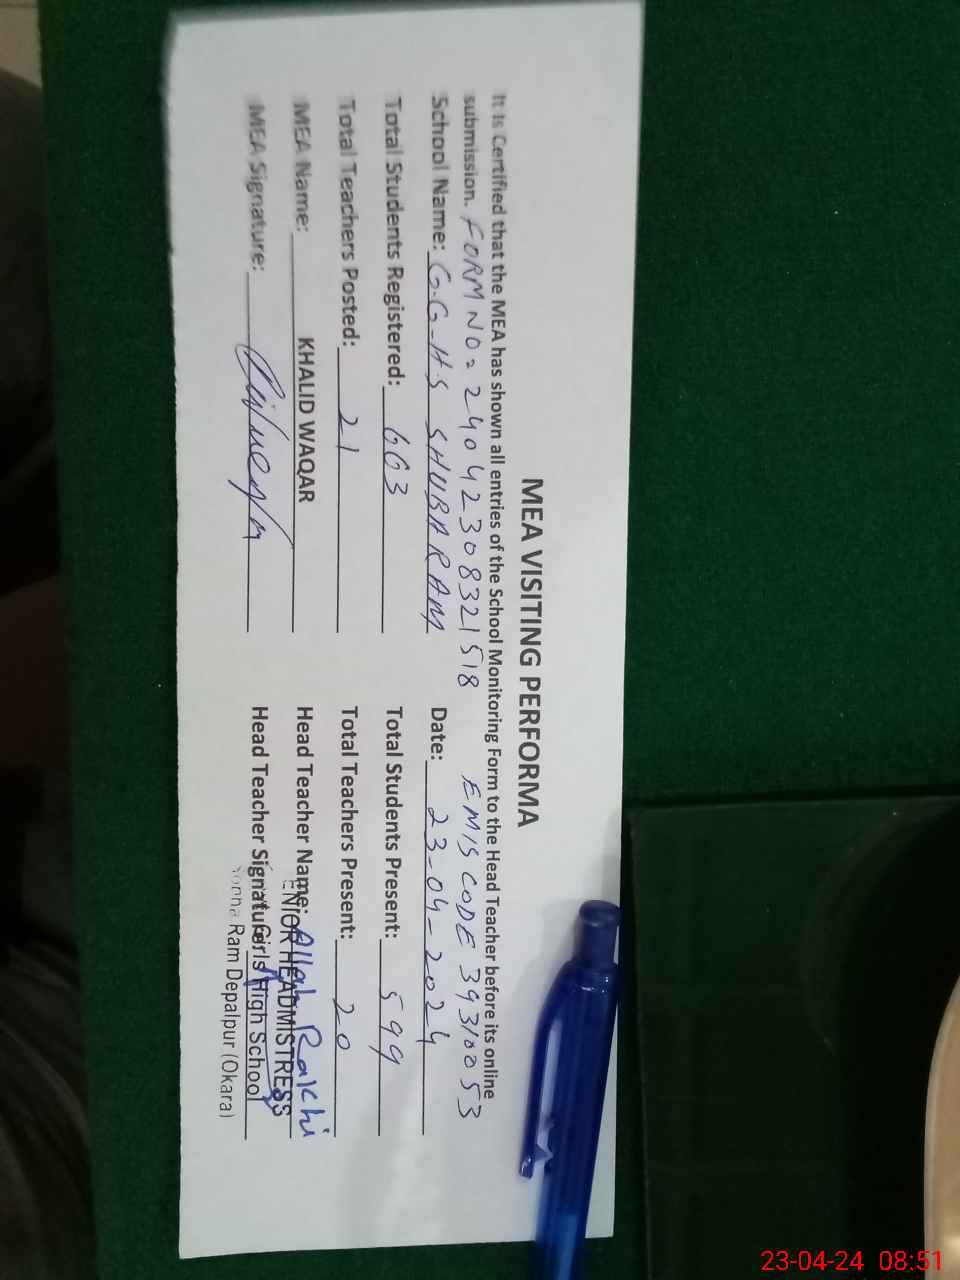 MEA VISITING PERFORMA
It Is Certified that the MEA has shown all entries of the School Monitoring Form to the Head Teacher before its online
submission. FORM NO= 24042308321518 EMIS CODE 39310053
School Name: G.G-H.S SHUBARAM Date: 23-04-2024
Total Students Registered: 603 Total Students Present: 599
Total Teachers Posted: 21 Total Teachers Present: 20
MEA Name: KHALID WAQAR Head Teacher Name: Allah Rakhi
ENIOR HEADMISTRESS
MEA Signature: Head Teacher Signature:
Girls High School
Ram Depalpur (Okara)
23-04-24 08:51